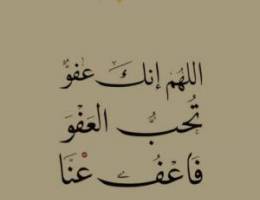 اللهم إنكَ عفوٌّ
تُحبُّ العَفْوَ
فَاعْفُ عَنَّا